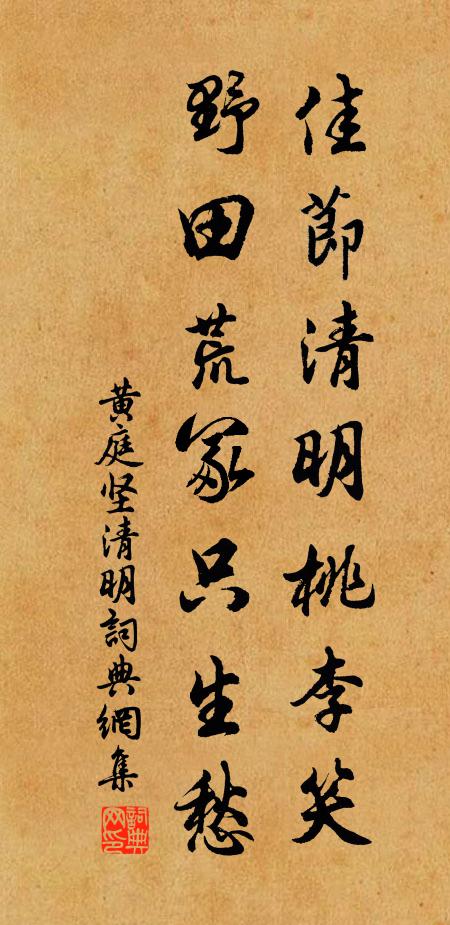 佳節清明桃李笑
野田荒冢只生愁
黄庭坚清明詞典網集
詞典網印